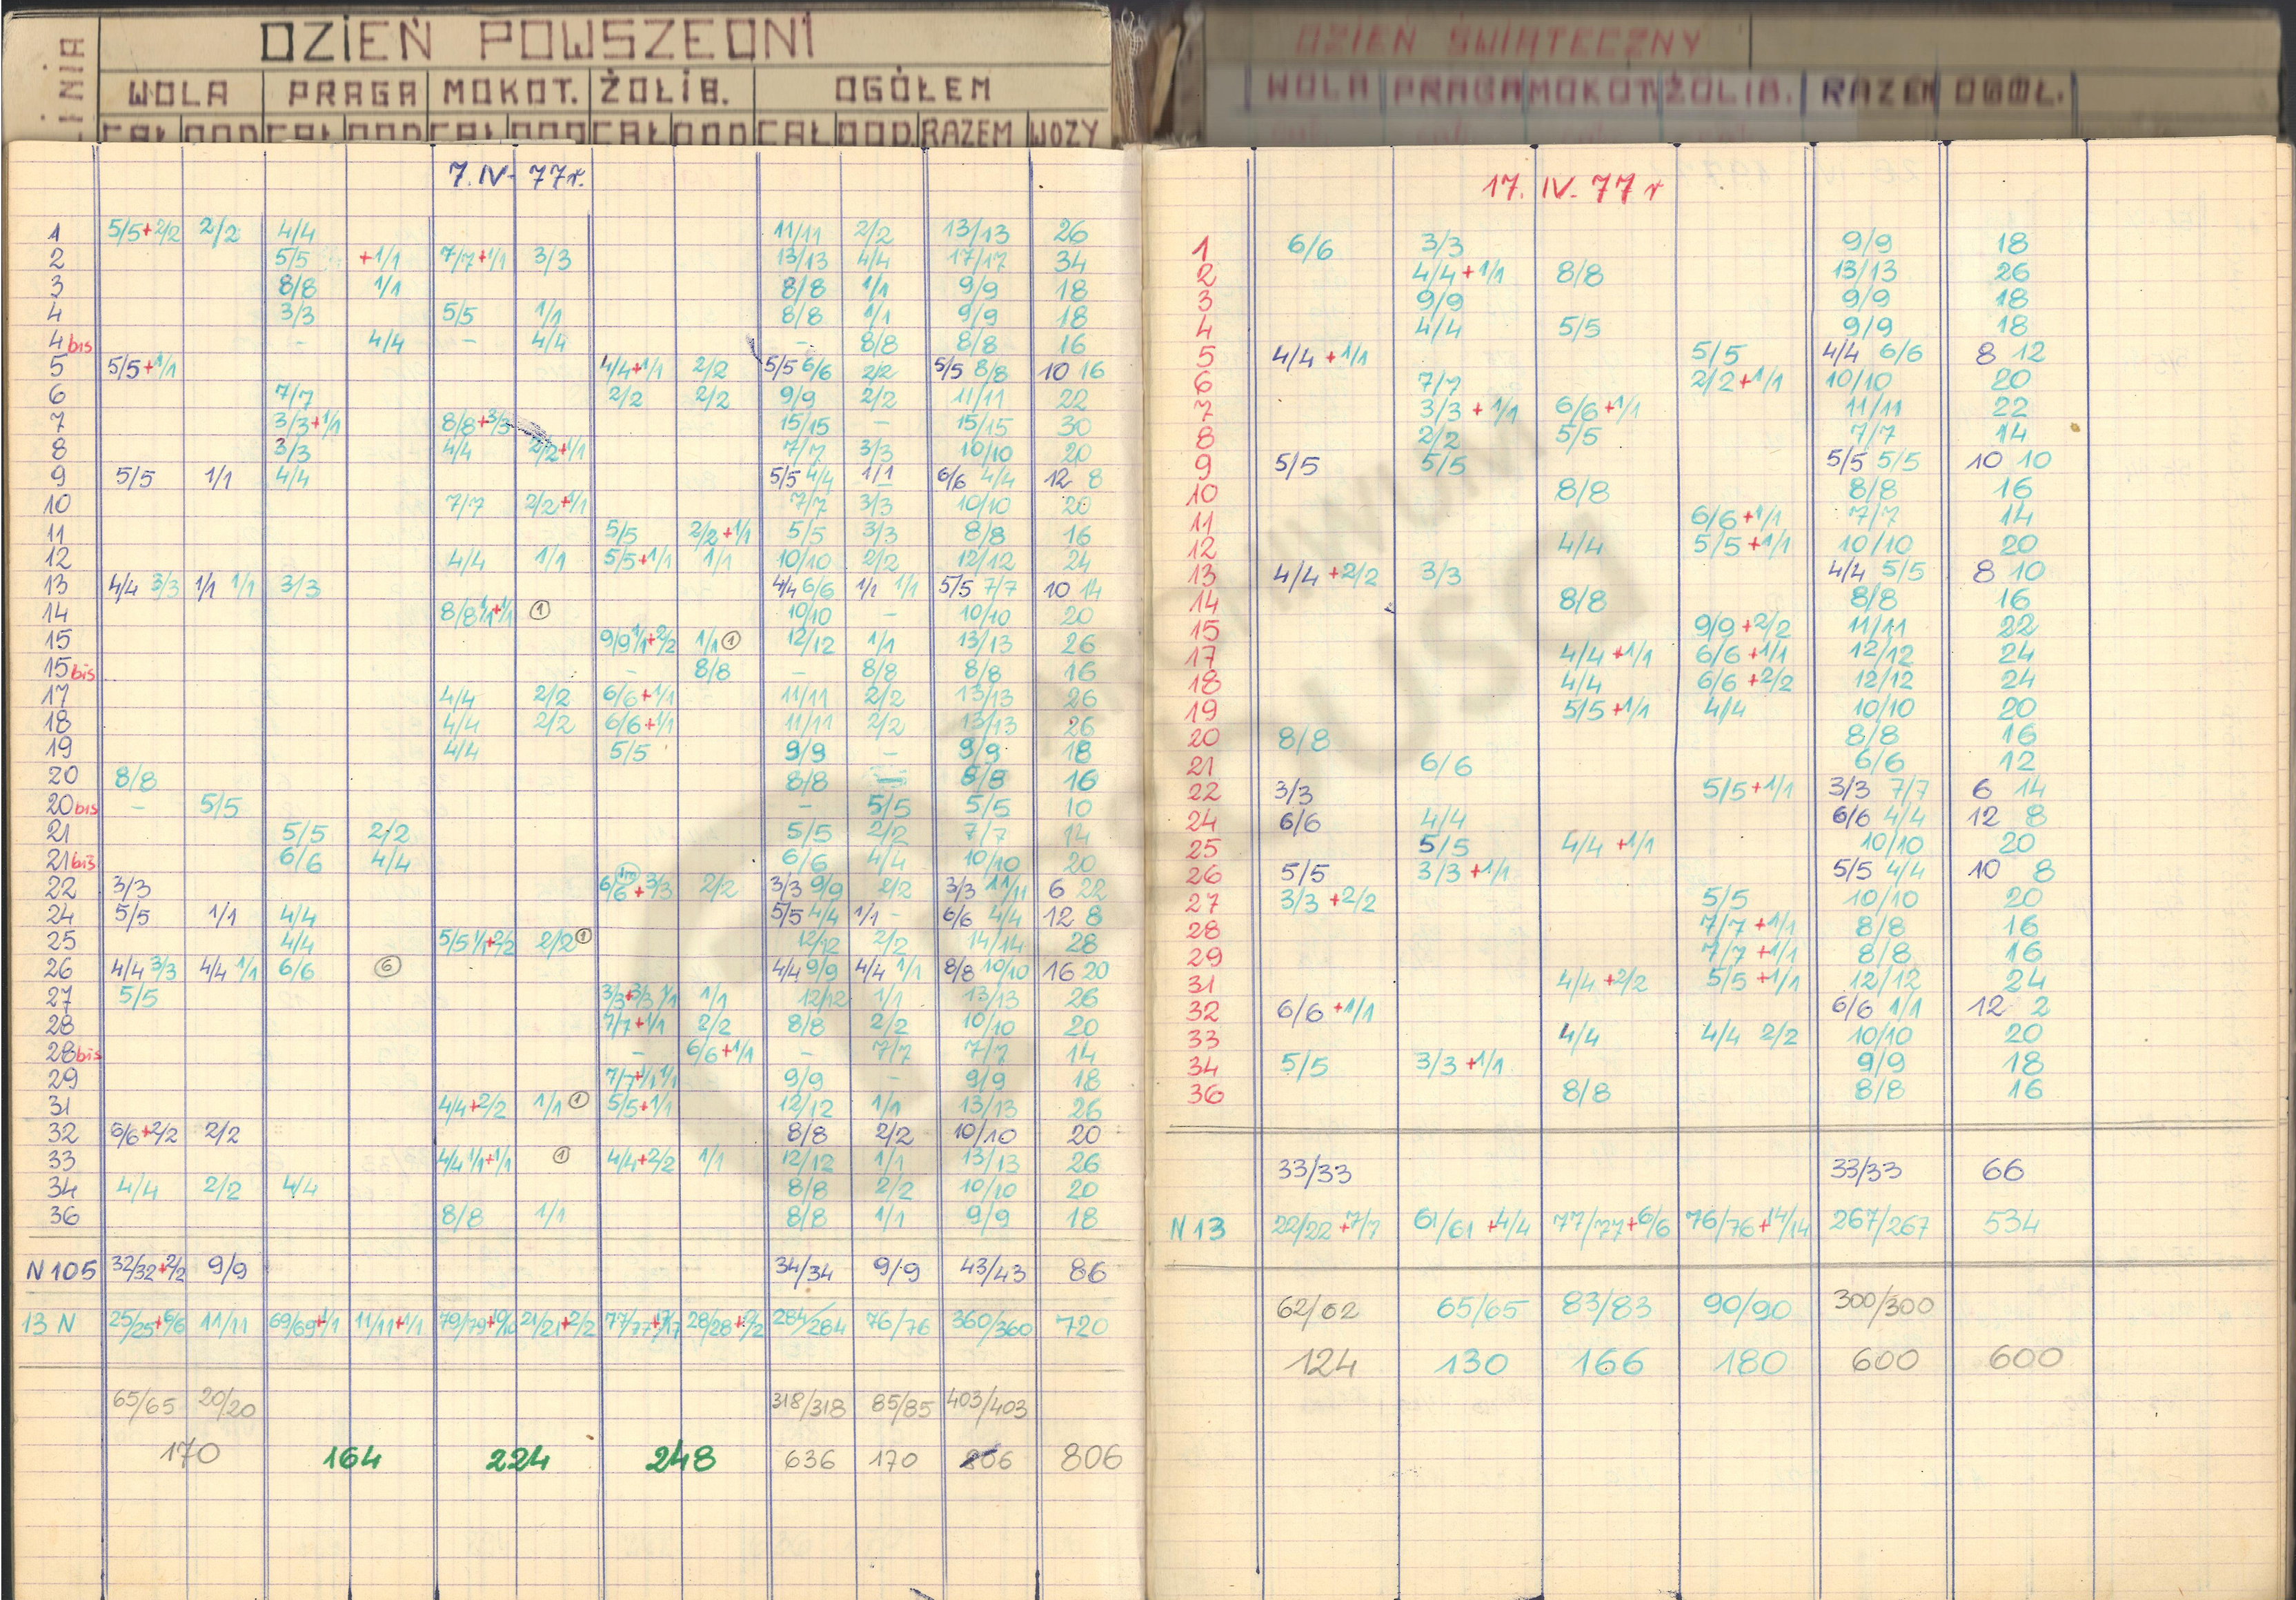 LINIA DZIEŃ POWSZEDNI
WOLA PRAGA MOKOT. ŻOLIB. OGÓŁEM
CAŁ DOD CAŁ DOD CAŁ DOD CAŁ DOD CAŁ DOD RAZEM WOZY
7.IV- 77r.
1 5/5+2/2 2/2 4/4 11/11 2/2 13/13 26
2 5/5 +1/1 7/7+1/1 3/3 13/13 4/4 17/17 34
3 8/8 1/1 8/8 1/1 9/9 18
4 3/3 5/5 1/1 8/8 1/1 9/9 18
4bis - 4/4 - 4/4 - 8/8 8/8 16
5 5/5+1/1 4/4+1/1 2/2 5/5 6/6 2/2 5/5 8/8 10 16
6 7/7 2/2 2/2 9/9 2/2 11/11 22
7 3/3+1/1 8/8+3/3 15/15 - 15/15 30
8 3/3 4/4 2/2+1/1 7/7 3/3 10/10 20
9 5/5 1/1 4/4 5/5 4/4 1/1 6/6 4/4 12 8
10 7/7 2/2+1/1 7/7 3/3 10/10 20
11 5/5 2/2+1/1 5/5 3/3 8/8 16
12 4/4 1/1 5/5+1/1 1/1 10/10 2/2 12/12 24
13 4/4 3/3 1/1 1/1 3/3 4/4 6/6 1/1 1/1 5/5 7/7 10 14
14 8/8 1/1+1/1 1 10/10 - 10/10 20
15 9/9 1/1+2/2 1/1 1 12/12 1/1 13/13 26
15bis - 8/8 - 8/8 8/8 16
17 4/4 2/2 6/6+1/1 11/11 2/2 13/13 26
18 4/4 2/2 6/6+1/1 11/11 2/2 13/13 26
19 4/4 5/5 9/9 - 9/9 18
20 8/8 8/8 - 8/8 16
20bis - 5/5 - 5/5 5/5 10
21 5/5 2/2 5/5 2/2 7/7 14
21bis 6/6 4/4 6/6 4/4 10/10 20
22 3/3 6/6+3/3 2/2 3/3 9/9 2/2 3/3 11/11 6 22
24 5/5 1/1 4/4 5/5 4/4 1/1 - 6/6 4/4 12 8
25 4/4 5/5 1/1+2/2 2/2 1 12/12 2/2 14/14 28
26 4/4 3/3 4/4 1/1 6/6 6 4/4 9/9 4/4 1/1 8/8 10/10 16 20
27 5/5 3/3+3/3 1/1 1/1 12/12 1/1 13/13 26
28 7/7+1/1 2/2 8/8 2/2 10/10 20
28bis - 6/6+1/1 - 7/7 7/7 14
29 7/7+1/1 1/1 9/9 - 9/9 18
31 4/4+2/2 1/1 1 5/5+1/1 12/12 1/1 13/13 26
32 6/6+2/2 2/2 8/8 2/2 10/10 20
33 4/4 1/1+1/1 1 4/4+2/2 1/1 12/12 1/1 13/13 26
34 4/4 2/2 4/4 8/8 2/2 10/10 20
36 8/8 1/1 8/8 1/1 9/9 18
N 105 32/32+2/2 9/9 34/34 9/9 43/43 86
13 N 25/25+6/6 11/11 69/69+1/1 11/11+1/1 79/79+10/10 21/21+2/2 77/77+17/17 28/28+2/2 284/284 76/76 360/360 720
65/65 20/20 318/318 85/85 403/403
170 164 224 248 636 170 806 806
DZIEŃ ŚWIĄTECZNY
WOLA PRAGA MOKOT ŻOLIB. RAZEM OGÓŁ.
17. IV- 77 r
1 6/6 3/3 9/9 18
2 4/4+1/1 8/8 13/13 26
3 9/9 9/9 18
4 4/4 5/5 9/9 18
5 4/4+1/1 5/5 4/4 6/6 8 12
6 7/7 2/2+1/1 10/10 20
7 3/3+1/1 6/6+1/1 11/11 22
8 2/2 5/5 7/7 14
9 5/5 5/5 5/5 5/5 10 10
10 8/8 8/8 16
11 6/6+1/1 7/7 14
12 4/4 5/5+1/1 10/10 20
13 4/4+2/2 3/3 4/4 5/5 8 10
14 8/8 8/8 16
15 9/9+2/2 11/11 22
17 4/4+1/1 6/6+1/1 12/12 24
18 4/4 6/6+2/2 12/12 24
19 5/5+1/1 4/4 10/10 20
20 8/8 8/8 16
21 6/6 6/6 12
22 3/3 5/5+1/1 3/3 7/7 6 14
24 6/6 4/4 6/6 4/4 12 8
25 5/5 4/4+1/1 10/10 20
26 5/5 3/3+1/1 5/5 4/4 10 8
27 3/3+2/2 5/5 10/10 20
28 7/7+1/1 8/8 16
29 7/7+1/1 8/8 16
31 4/4+2/2 5/5+1/1 12/12 24
32 6/6+1/1 6/6 1/1 12 2
33 4/4 4/4 2/2 10/10 20
34 5/5 3/3+1/1 9/9 18
36 8/8 8/8 16
33/33 33/33 66
N 13 22/22+7/7 61/61+4/4 77/77+6/6 76/76+14/14 267/267 534
62/62 65/65 83/83 90/90 300/300
124 130 166 180 600 600